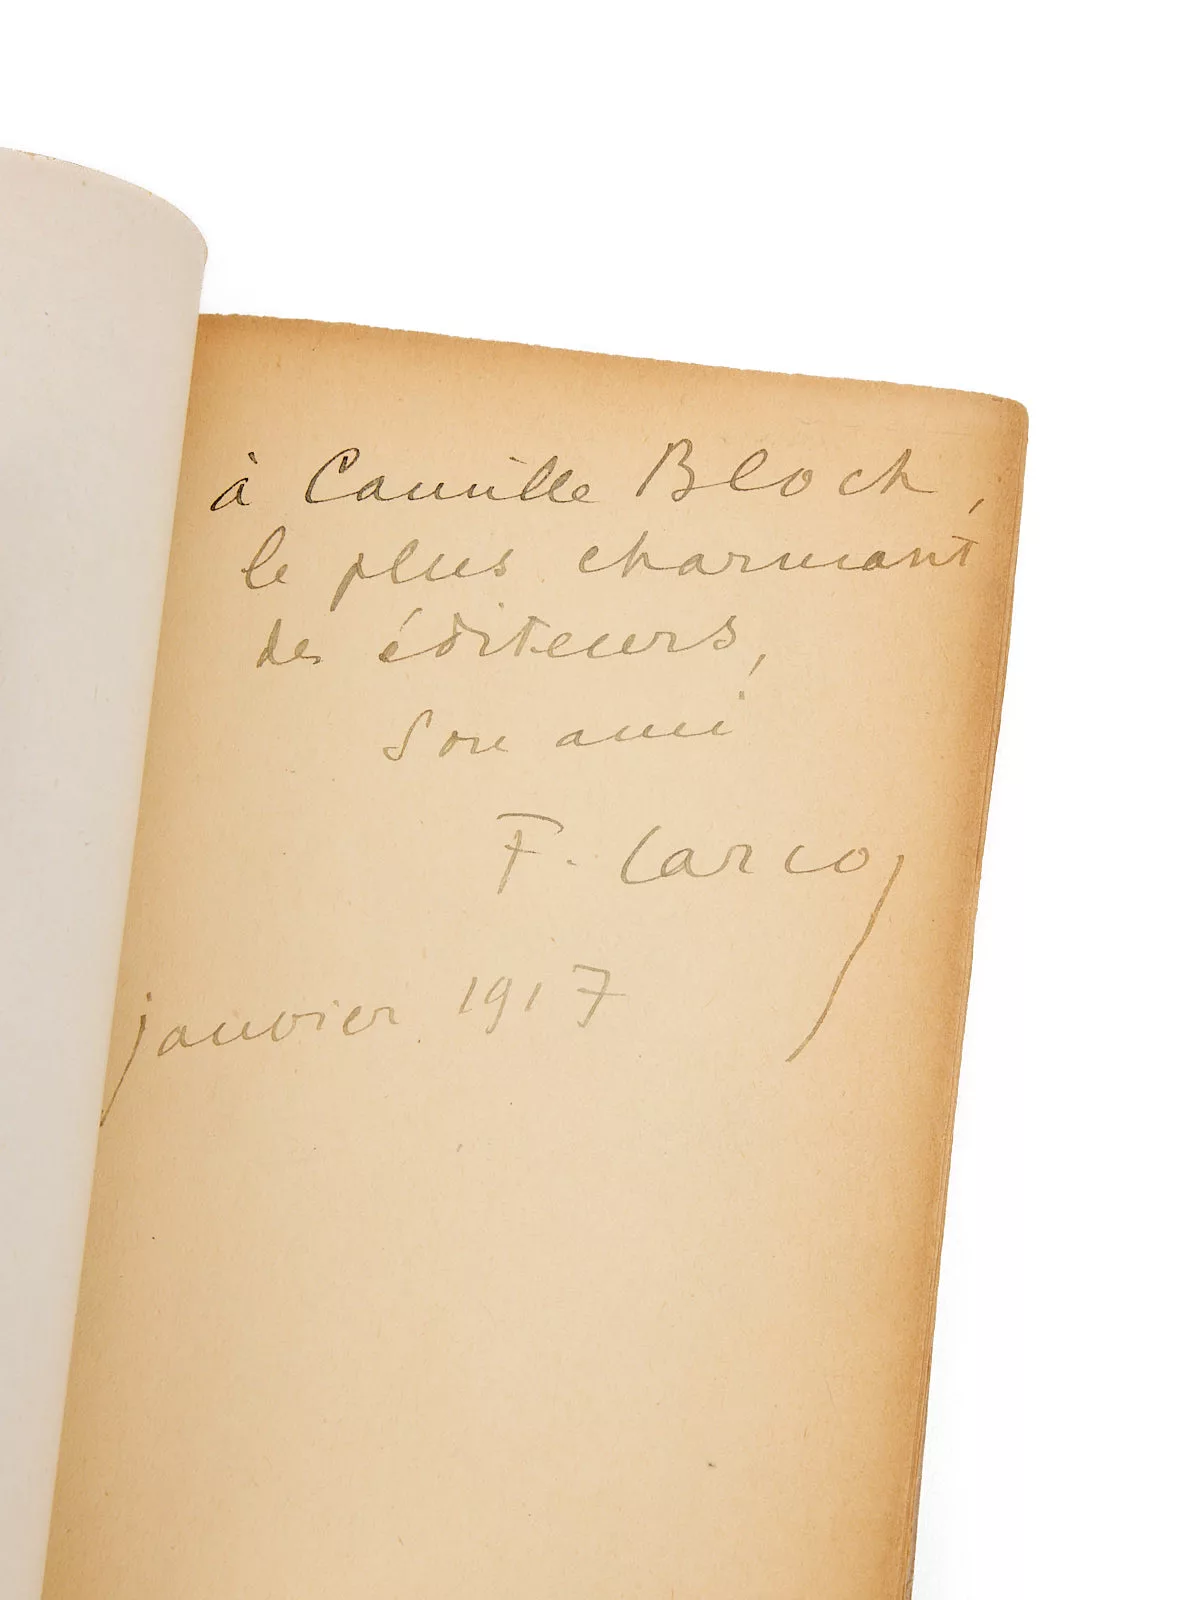 à Camille Bloch,
le plus charmant
des éditeurs,
Son ami
F. Carco
janvier 1917